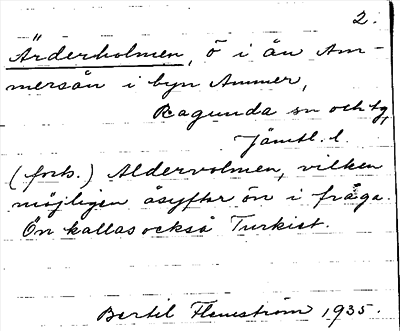 2.
Ärderholmen, ö i ån Am-
mersån i byn Ammer,
Ragunda sn och tg,
Jämtl. l.
(forts.) Aldervolmen, vilken
möjligen åsyftar ön i fråga.
Ön kallas också Turkist.
Bertil Flemström 1935.